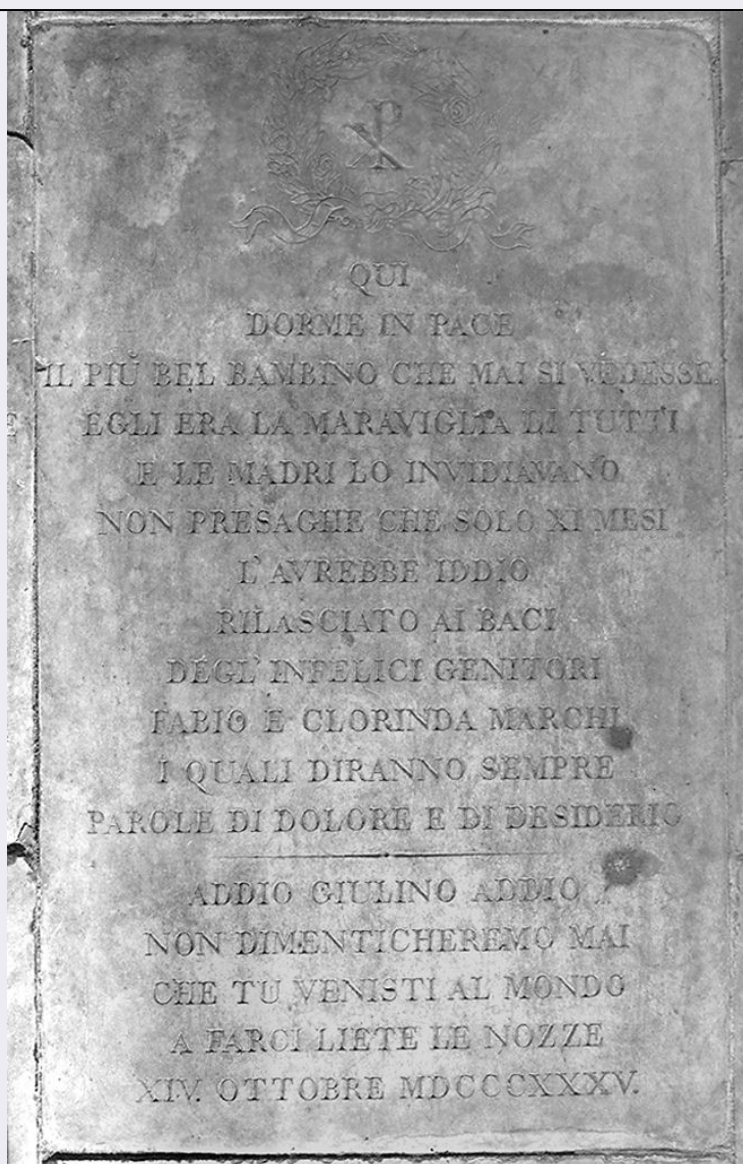 QUI
DORME IN PACE
IL PIÙ BEL BAMBINO CHE MAI SI VEDESSE
EGLI ERA LA MARAVIGLIA DI TUTTI
E LE MADRI LO INVIDIAVANO
NON PRESAGHE CHE SOLO XI MESI
L'AVREBBE IDDIO
RILASCIATO AI BACI
DEGL'INFELICI GENITORI
FABIO E CLORINDA MARCHI
I QUALI DIRANNO SEMPRE
PAROLE DI DOLORE E DI DESIDERIO
ADDIO GIULINO ADDIO
NON DIMENTICHEREMO MAI
CHE TU VENISTI AL MONDO
A FARCI LIETE LE NOZZE
XIV. OTTOBRE MDCCCXXXV.